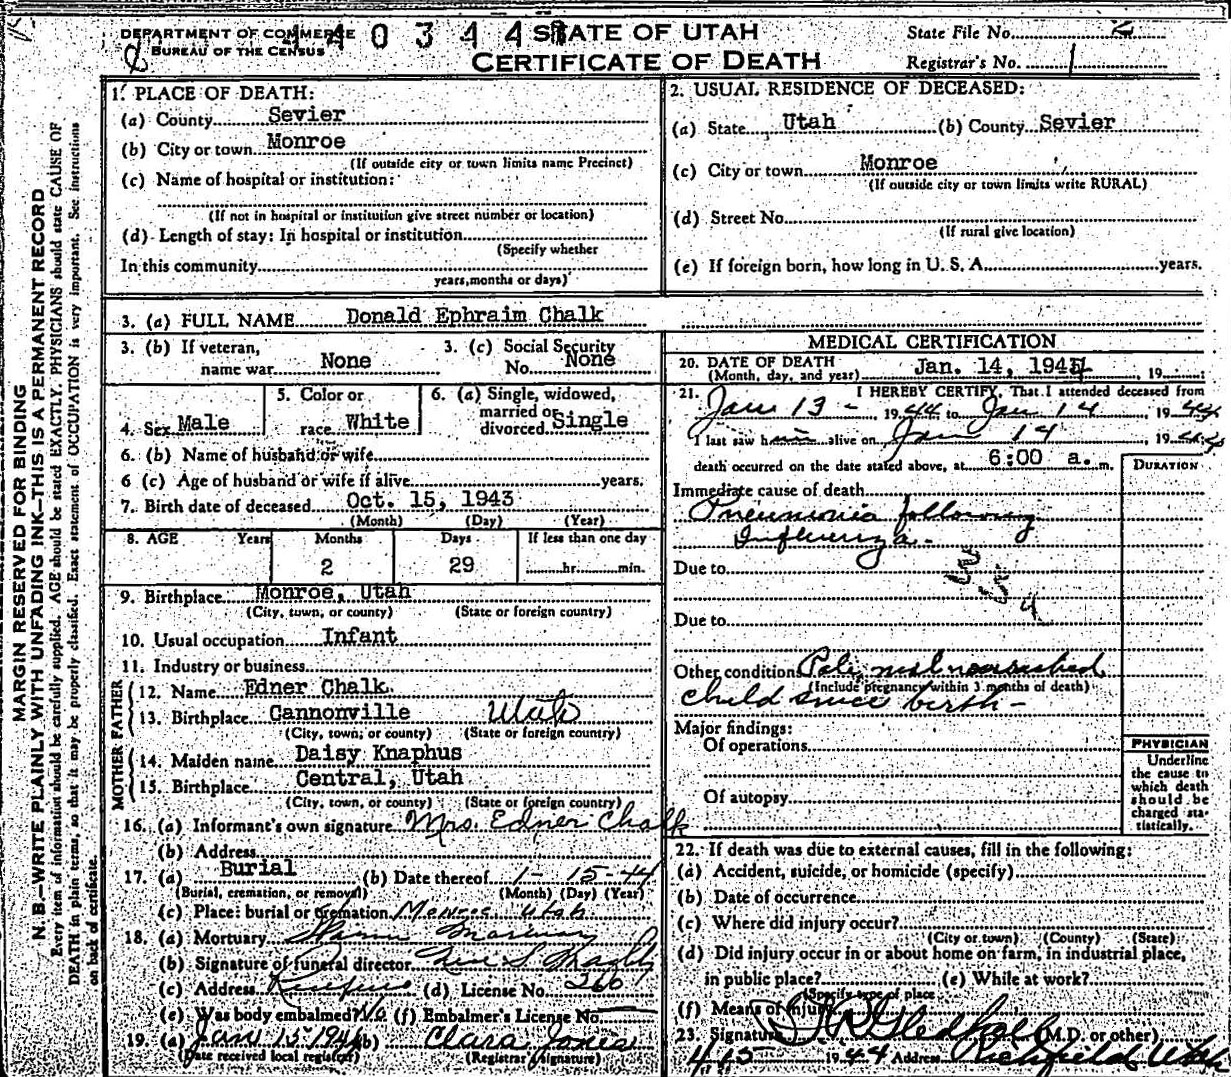 DEPARTMENT OF COMMERCE
BUREAU OF THE CENSUS
STATE OF UTAH
CERTIFICATE OF DEATH
State File No.
Registrar's No. 1
MARGIN RESERVED FOR BINDING
N. B.—WRITE PLAINLY WITH UNFADING INK—THIS IS A PERMANENT RECORD
Every item of information should be carefully supplied. AGE should be stated EXACTLY. PHYSICIANS should state CAUSE OF
DEATH in plain terms, so that it may be properly classified. Exact statement of OCCUPATION is very important. See instructions
on back of certificate.
1. PLACE OF DEATH:
(a) County Sevier
(b) City or town Monroe
(If outside city or town limits name Precinct)
(c) Name of hospital or institution:
(If not in hospital or institution give street number or location)
(d) Length of stay: In hospital or institution
(Specify whether
In this community
years, months or days)
2. USUAL RESIDENCE OF DECEASED:
(a) State Utah (b) County Sevier
(c) City or town Monroe
(If outside city or town limits write RURAL)
(d) Street No.
(If rural give location)
(e) If foreign born, how long in U. S. A. years.
3. (a) FULL NAME Donald Ephraim Chalk
3. (b) If veteran, name war None
3. (c) Social Security No. None
4. Sex Male
5. Color or race White
6. (a) Single, widowed, married or divorced Single
6. (b) Name of husband or wife
6 (c) Age of husband or wife if alive years.
7. Birth date of deceased Oct. 15, 1943
(Month) (Day) (Year)
8. AGE Years Months Days If less than one day
2 29 hr. min.
9. Birthplace Monroe, Utah
(City, town, or county) (State or foreign country)
10. Usual occupation Infant
11. Industry or business
FATHER
12. Name Edner Chalk
13. Birthplace Cannonville Utah
(City, town, or county) (State or foreign country)
MOTHER
14. Maiden name Daisy Knaphus
15. Birthplace Central, Utah
(City, town, or county) (State or foreign country)
16. (a) Informant's own signature Mrs. Edner Chalk
(b) Address
17. (a) Burial (b) Date thereof 1-15-44
(Burial, cremation, or removal) (Month) (Day) (Year)
(c) Place: burial or cremation Monroe Utah
18. (a) Mortuary
(b) Signature of funeral director
(c) Address (d) License No. 260
(e) Was body embalmed? No (f) Embalmer's License No.
19. (a) Jan 15 1944 (b) Clara Jones
(Date received local registrar) (Registrar's signature)
MEDICAL CERTIFICATION
20. DATE OF DEATH Jan. 14, 1944, 19
(Month, day, and year)
21. I HEREBY CERTIFY, That I attended deceased from
Jan 13 - , 1944 to Jan 14 , 1944
I last saw him alive on Jan 14 , 1944
death occurred on the date stated above, at 6:00 a. m.
DURATION
Immediate cause of death
Pneumonia following
Influenza -
Due to
Due to
Other conditions nourished
(Include pregnancy within 3 months of death)
child since birth -
Major findings:
Of operations
Of autopsy
PHYSICIAN
Underline
the cause to
which death
should be
charged sta-
tistically.
22. If death was due to external causes, fill in the following:
(a) Accident, suicide, or homicide (specify)
(b) Date of occurrence
(c) Where did injury occur?
(City or town) (County) (State)
(d) Did injury occur in or about home on farm, in industrial place,
in public place? (e) While at work?
(Specify type of place)
(f) Means of injury
23. Signature Gledhill (M.D. or other)
1944 Address Richfield Utah